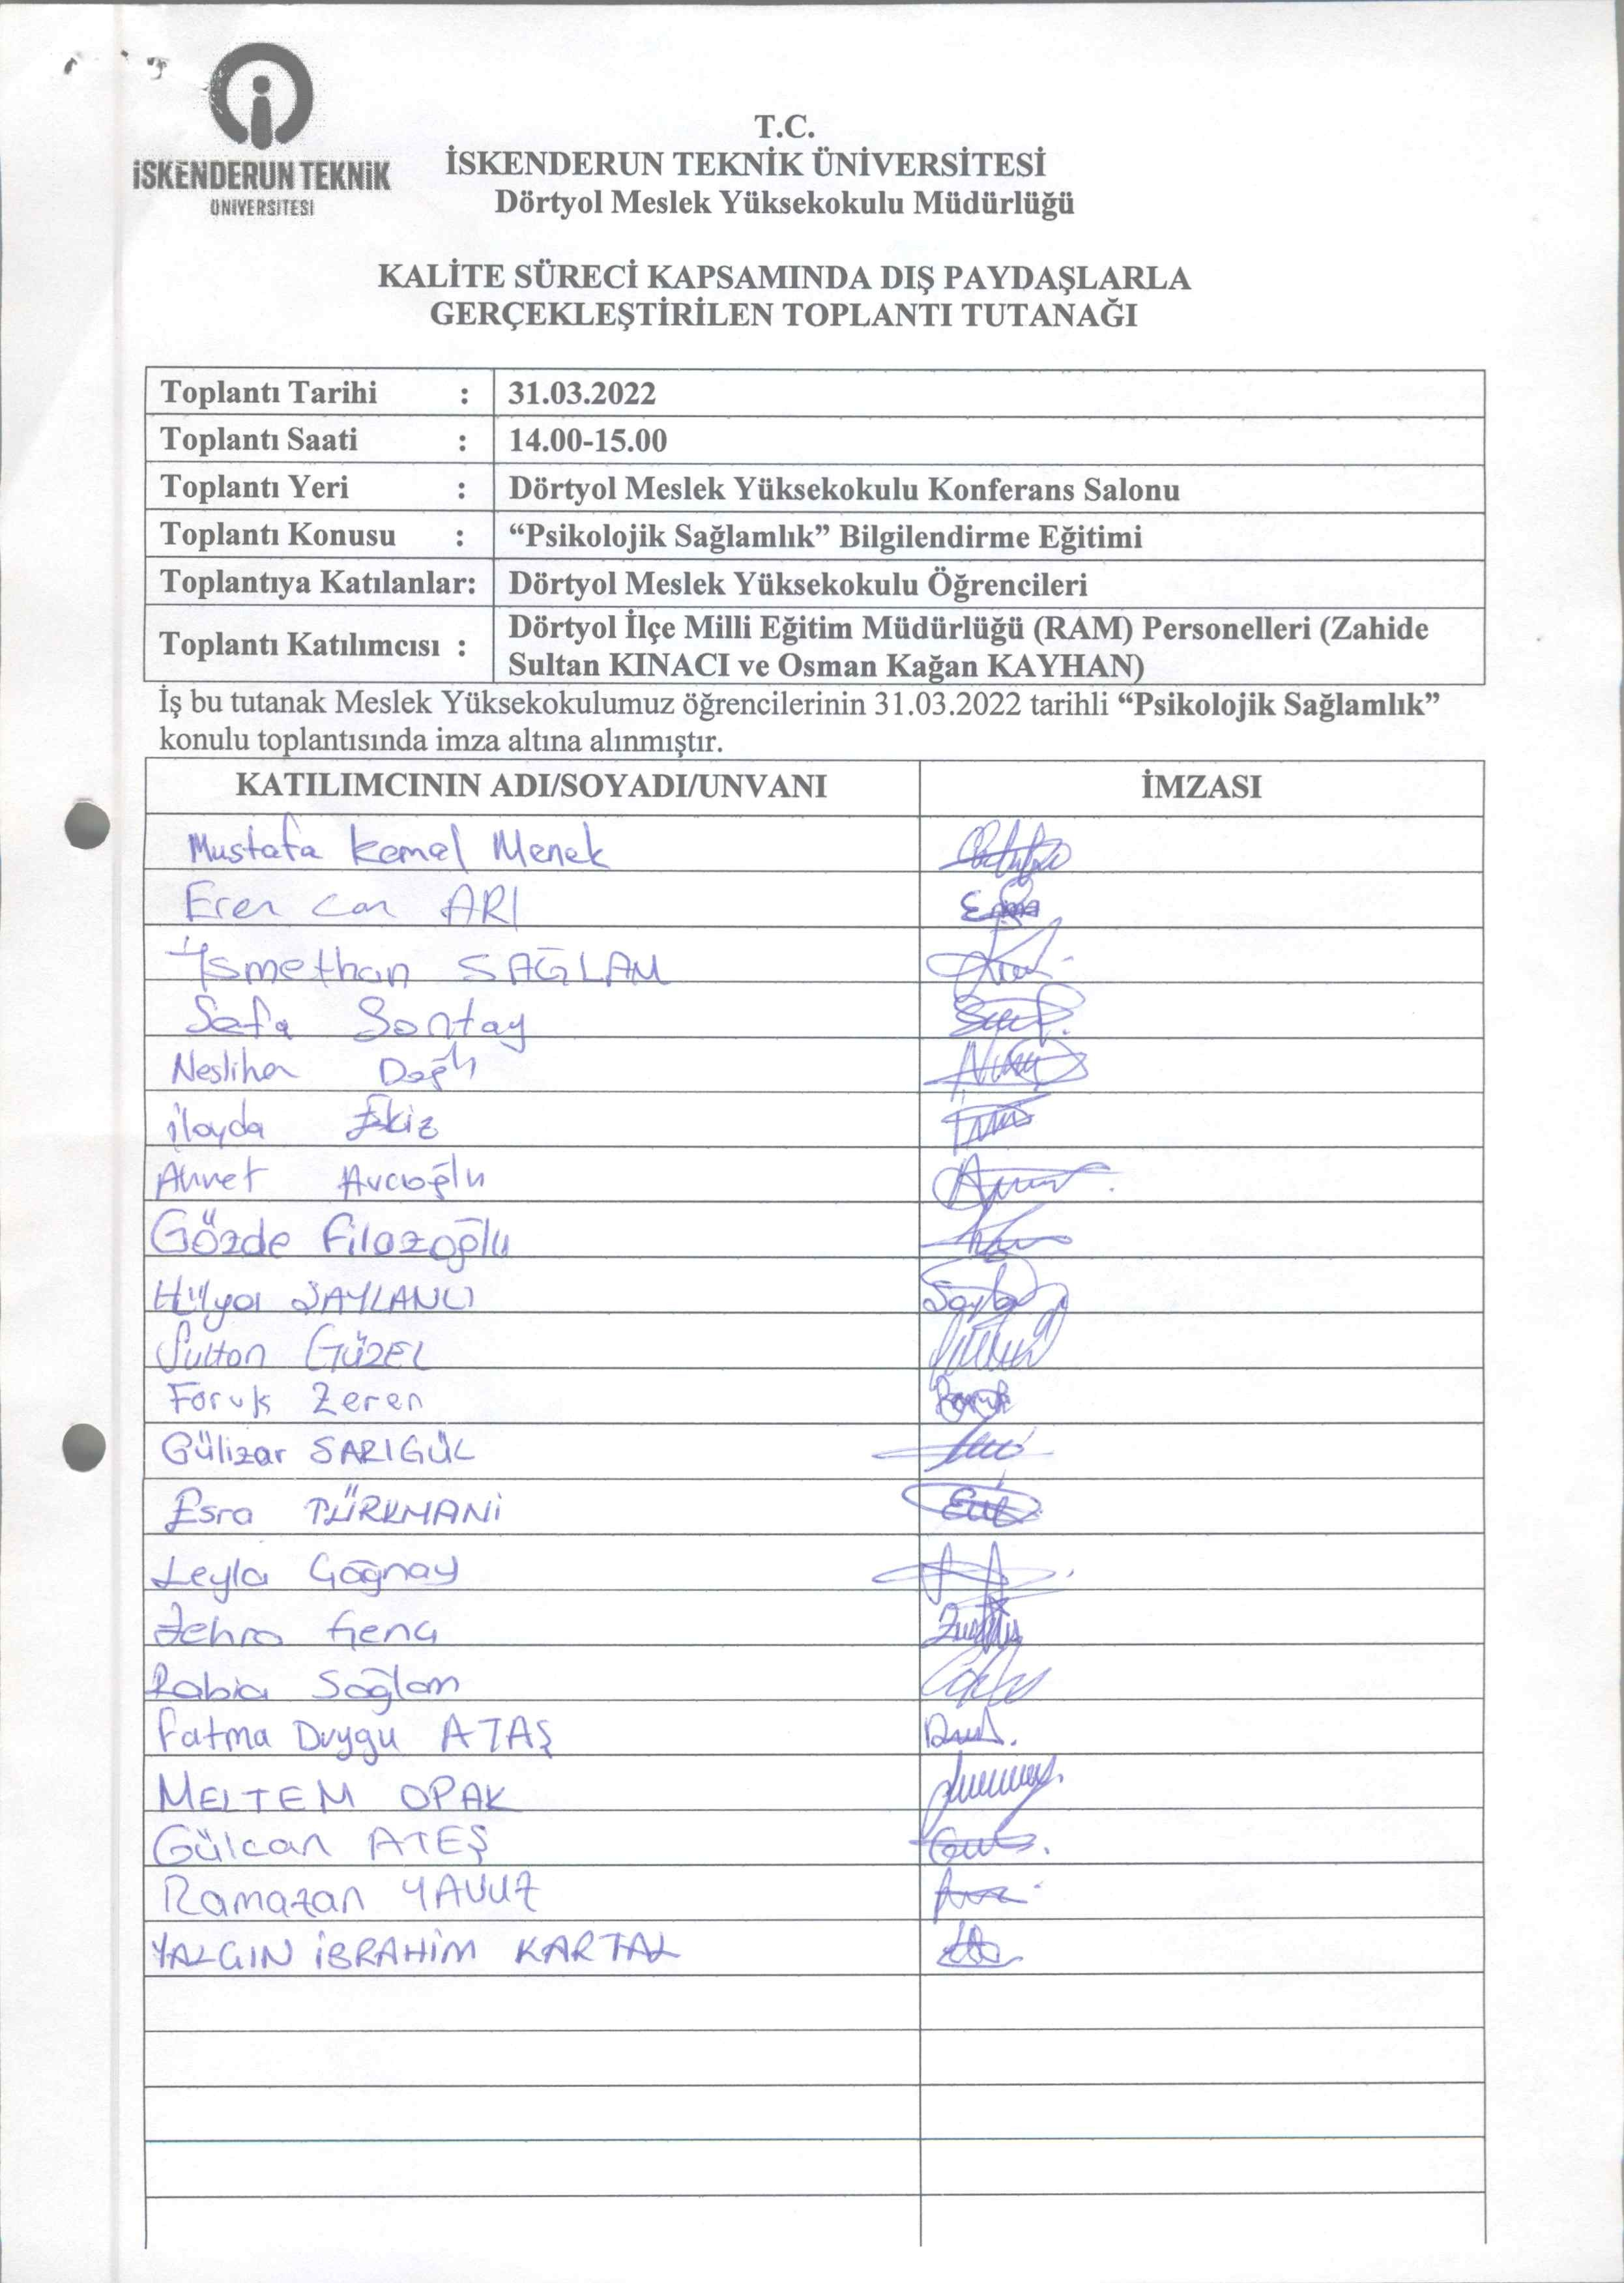 İSKENDERUN TEKNİK
ÜNİVERSİTESİ
T.C.
İSKENDERUN TEKNİK ÜNİVERSİTESİ
Dörtyol Meslek Yüksekokulu Müdürlüğü
KALİTE SÜRECİ KAPSAMINDA DIŞ PAYDAŞLARLA
GERÇEKLEŞTİRİLEN TOPLANTI TUTANAĞI
Toplantı Tarihi : 31.03.2022
Toplantı Saati : 14.00-15.00
Toplantı Yeri : Dörtyol Meslek Yüksekokulu Konferans Salonu
Toplantı Konusu : “Psikolojik Sağlamlık” Bilgilendirme Eğitimi
Toplantıya Katılanlar: Dörtyol Meslek Yüksekokulu Öğrencileri
Toplantı Katılımcısı : Dörtyol İlçe Milli Eğitim Müdürlüğü (RAM) Personelleri (Zahide
Sultan KINACI ve Osman Kağan KAYHAN)
İş bu tutanak Meslek Yüksekokulumuz öğrencilerinin 31.03.2022 tarihli “Psikolojik Sağlamlık”
konulu toplantısında imza altına alınmıştır.
KATILIMCININ ADI/SOYADI/UNVANI İMZASI
Mustafa Kemal Menek
Eren Can ARI
İsmethan SAĞLAM
Safa Sontay
Neslihan Dağlı
ilayda Ekiz
Ahmet Avcıoğlu
Gözde Filazoğlu
Hülya SAYLANCI
Sultan GÜZEL
Faruk Zeren
Gülizar SARIGÜL
Esra TÜRKMANİ
Leyla
Zehra Genç
Rabia Sağlam
Fatma Duygu ATAŞ
MELTEM OPAK
Gülcan ATEŞ
Ramazan YAVUZ
YALÇIN İBRAHİM KARTAL